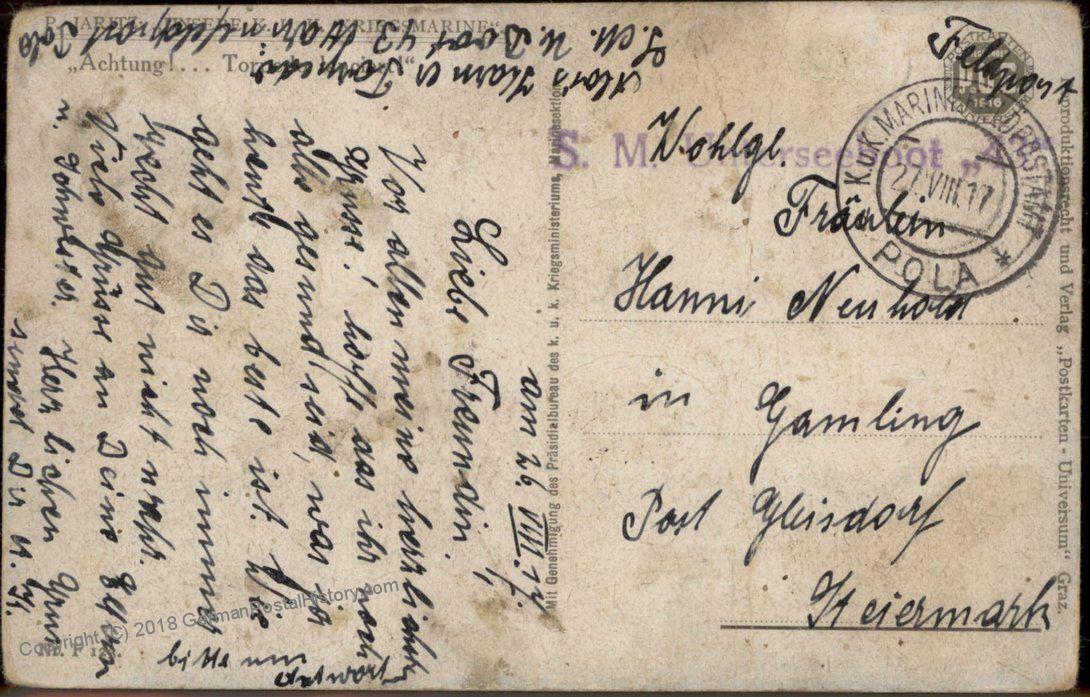 P. JARITZ: „UNSERE K. U. K. KRIEGSMARINE“
„Achtung! . . . Torpedo
S. M. U. Boot 43
Feldpost
S. M. Unterseeboot „43“
K.U.K. MARINEFELDPOSTAMT
27.VIII.17
POLA
Wohlgb.
Fräulein
Hanni Neuhold
in
Gamling
Post Gleisdorf
Steiermark
am 26 VIII. 17.
Liebe Freundin.
Vor allem meine herzlichste
Grüsse! hoffe das ihr noch
alle gesund seid, was ja
heut das beste ist. Wie
geht es Dir noch immer
recht gut nicht wahr.
Viele Grüsse an Deine Eltern
u. Herzlichen Gruss
sendet Dir
bitte um
Antwort
Mit Genehmigung des Präsidialbureau des k. u. k. Kriegsministeriums, Marinesektion
Reproduktionsrecht und Verlag „Postkarten - Universum“ Graz.
Copyright (C) 2018 GermanPostalHistory.com